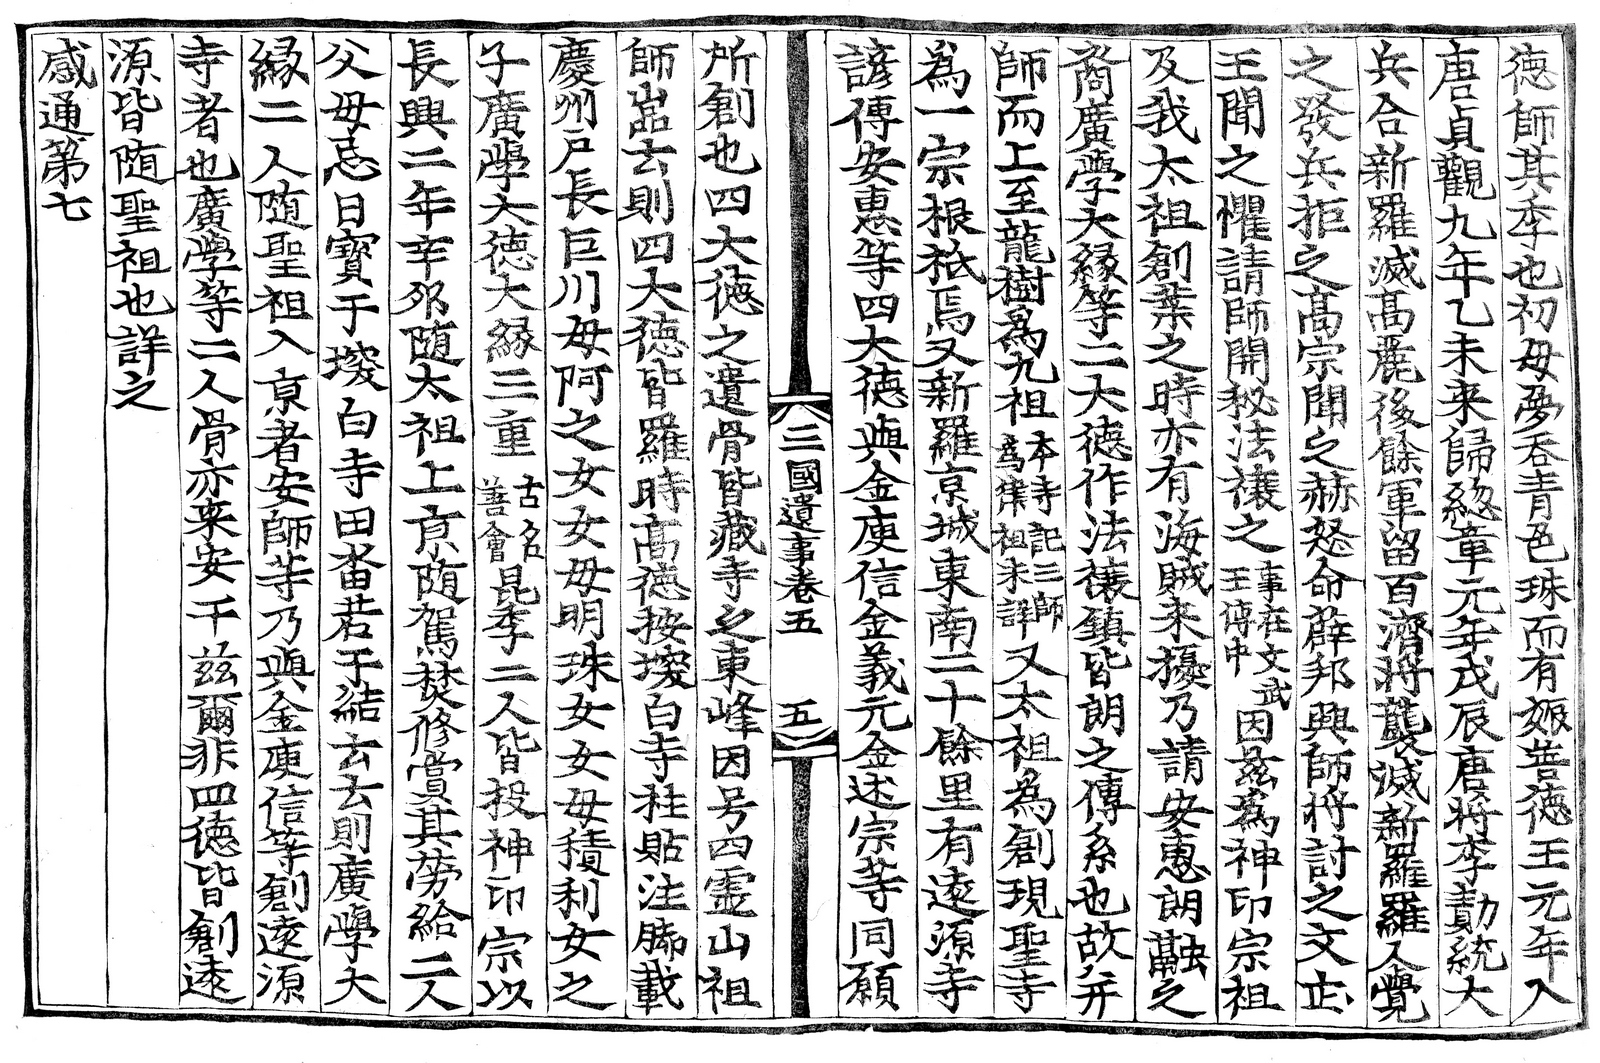 德師其季也初母夢吞青色珠而有娠善德王元年入
唐貞觀九年乙未来歸緫章元年戊辰唐將李勣統大
兵合新羅滅髙麗後餘軍留百濟將襲滅新羅羅人覺
之發兵拒之髙宗聞之赫怒命薛邦興師將討之文武
王聞之懼請師開秘法禳之事在文武王傳中因兹爲神印宗祖
及我太祖創業之時亦有海賊来擾乃請安惠朗融之
裔廣學大縁等二大德作法禳鎮皆朗之傳系也故并
師而上至龍樹爲九祖本寺記三師爲律祖未詳又太祖為創現聖寺
為一宗根柢焉又新羅京城東南二十餘里有逺源寺
諺傳安惠等四大德與金庾信金義元金述宗等同願
三國遺事卷五 五
所創也四大德之遺骨皆藏寺之東峰因号四霊山祖
師嵓云則四大德皆羅時髙德按堗白寺柱貼注脚載
慶州戸長巨川母阿之女女母明珠女女母積利女之
子廣學大德大縁三重古名善會昆季二人皆投神印宗以
長興二年辛夘随太祖上京随駕焚修賞其勞給二人
父母忌日寳于堗白寺田畓若干結云云則廣學大
縁二人随聖祖入京者安師等乃與金庾信等創逺源
寺者也廣學等二人骨亦来安千兹爾非四德皆創逺
源皆随聖祖也詳之
感通第七